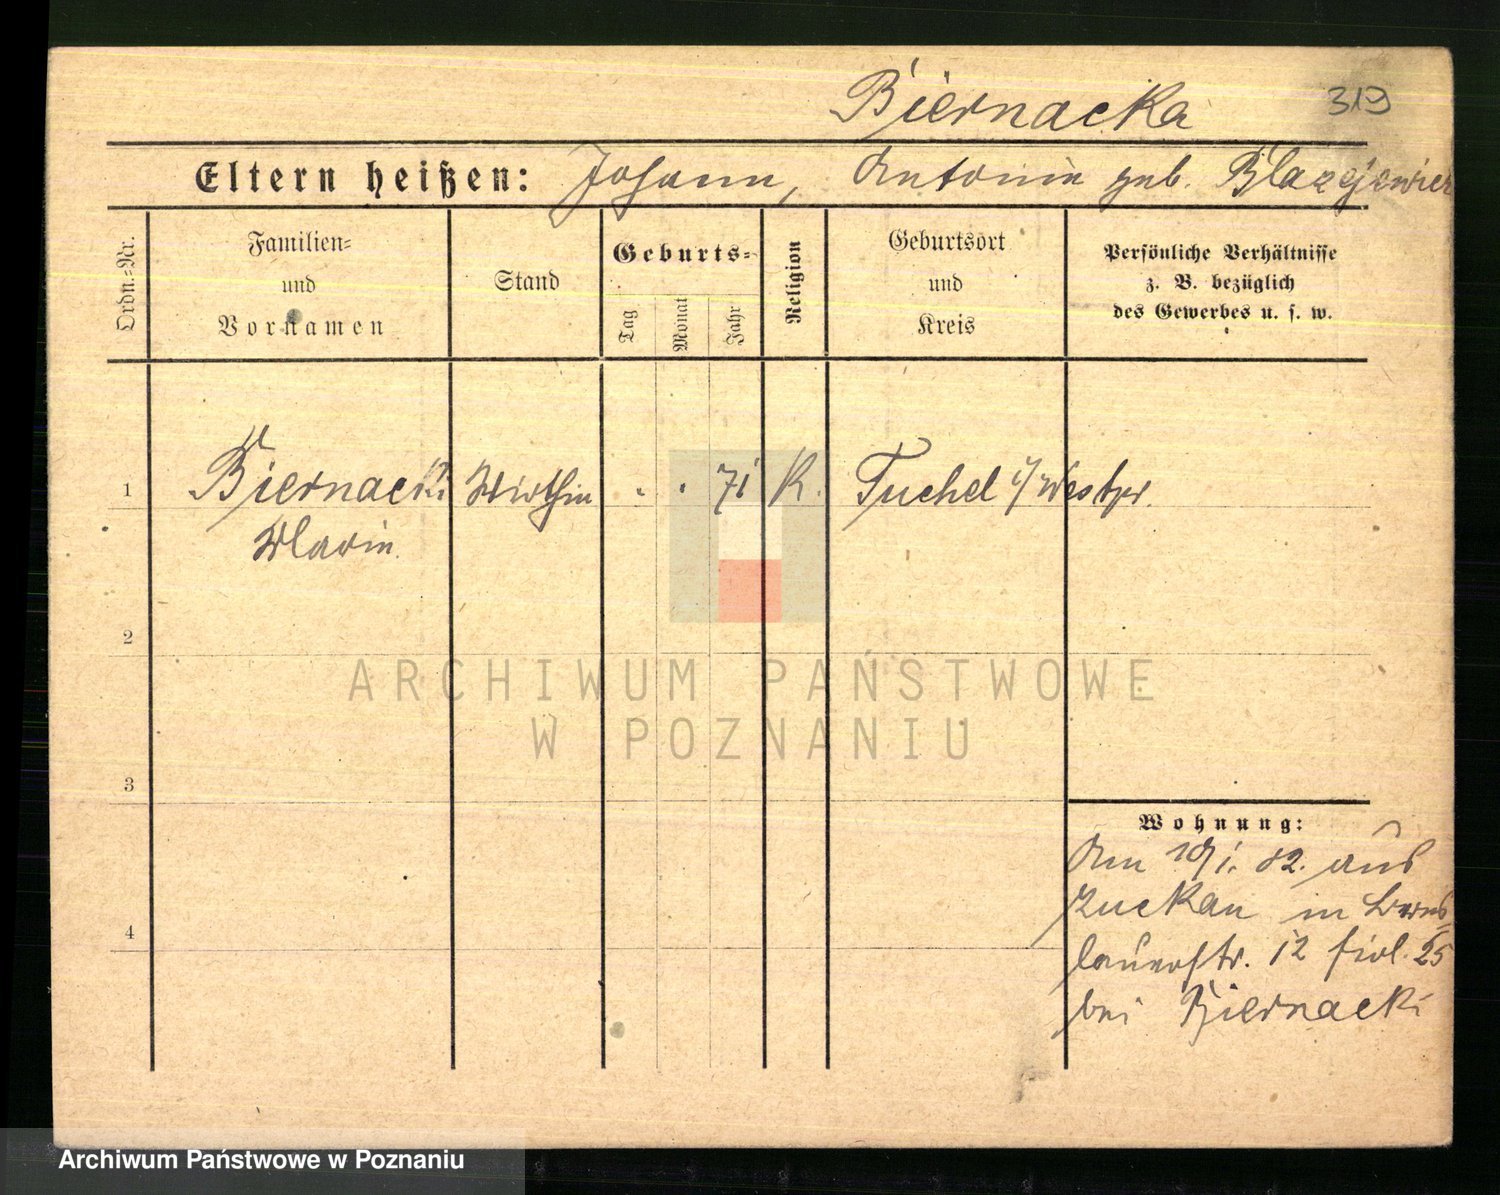 Biernacka 319
Eltern heißen: Johann, Antonie geb. Blazejewicz
Ordn.=Nr.
Familien=
und
Vornamen
Stand
Geburts=
Tag
Monat
Jahr
Religion
Geburtsort
und
Kreis
Persönliche Verhältnisse
z. B. bezüglich
des Gewerbes u. s. w.
1 Biernacki Wirthin . . 71 K. Tuchel i/Westpr.
2
3
4
Wohnung:
Am aus
Zuckau in
12 25
bei Biernacki
ARCHIWUM PAŃSTWOWE
W POZNANIU
Archiwum Państwowe w Poznaniu